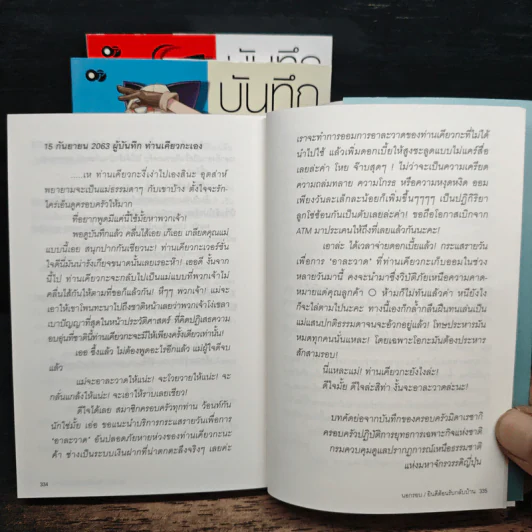 บันทึก
บันทึก
15 กันยายน 2063 ผู้บันทึก ท่านเคียวกะเอง
.....เห ท่านเคียวกะงี่เง่าไปเองสินะ อุตส่าห์
พยายามจะเป็นแม่ธรรมดาๆ กับเขาบ้าง ตั้งใจจะรัก-
ใคร่เอ็นดูครอบครัวให้มาก
ที่อยากพูดมีแค่นี้ใช่มั้ยหาพวกเจ้า!
พอดูบันทึกแล้ว คลื่นไส้เอย เกือย เกลียดคุณแม่
แบบนี้เอย สนุกปากกันเชียวนะ! ท่านเคียวกะเวอร์ชัน
ใจดีนี่มันน่ารังเกียจขนาดนั้นเลยเรอะห๊า! เออดี งั้นจาก
นี้ไป ท่านเคียวกะจะกลับไปเป็นแม่แบบที่พวกเจ้าไม่
คลื่นไส้กันให้ตามที่ขอก็แล้วกัน! หึๆๆ พวกเจ้า! แม่จะ
เอาให้เขาไพนทะนาไปถึงชาติหน้าเลยว่าพวกเจ้าโง่เขลา
เบาปัญญาที่สุดในหน้าประวัติศาสตร์ ที่คิดปฏิเสธความ
อบอุ่นที่ชาตินี้ท่านเคียวกะจะมีให้เพียงครั้งเดียวเท่านั้น!
เอย ซึ้งแล้ว ไม่ต้องพูดอะไรอีกแล้ว แม่ผู้ใจดีจบ
แล้ว
แม่จะอาละวาดให้แน่ะ! จะโวยวายให้แน่ะ! จะ
กลั่นแกล้งให้แน่ะ! จะเอาให้ราบเลยเชียว!
ดีใจได้เลย สมาชิกครอบครัวทุกท่าน ว้อนท์กัน
นักใช่มั้ย เอ่อ ขอแนะนำบริการกระแสรายวันเพื่อการ
'อาละวาด' อันปลอดภัยหายห่วงของท่านเคียวกะนะ
คะ่า ช่างเป็นระบบเงินฝากที่น่าตกตะลึงจริงๆ เลยค่ะ
334
เราจะทำการออมการอาละวาดของท่านเคียวกะที่ไม่ได้
นำไปใช้ แล้วเพิ่มดอกเบี้ยให้สูงชะลูดแบบไม่แคร์สื่อ
เลยล่ะค่า! โหย จ๊าบสุดๆ ! ไม่ว่าจะเป็นความเครียด
ความถล่มทลาย ความโกรธ หรือความหงุดหงิด ออม
เพียงวันละเล็กละน้อยก็เพิ่มขึ้นๆๆๆๆ เป็นปฏิกิริยา
ลูกโซ่ซ้อนกันเป็นตับเลยล่ะค่า! ขอถือโอกาสเบิกจาก
ATM มาประเคนให้ถึงที่เลยแล้วกันนะคะ!
เอาล่ะ ได้เวลาจ่ายดอกเบี้ยแล้ว! กระแสรายวัน
เพื่อการ 'อาละวาด' ที่ท่านเคียวกะเก็บออมในช่วง
หลายวันมานี้ คงจะนำมาซึ่งวิบัติภัยเหนือความคาด-
หมายแด่คุณลูกค้า ○ ห้ามก็ไม่ทันแล้วค่า หนียังไง
ก็จะไล่ตามไปนะคะ ทางนี้เองก็กล้ำกลืนฝืนทนเล่นเป็น
แม่แสนปกติธรรมดาจนจะอ้วกอยู่แล้ว! โทษประหารมัน
หมดทุกคนนั่นแหละ! โดยเฉพาะโอกะมันต้องประหาร
สักสามรอบ!
นี่แหละแม่! ท่านเคียวกะยังไงล่ะ!
ดีใจมั้ย ดีใจล่ะสิท่า งั้นจะอาละวาดล่ะนะ!
บทคัดย่อจากบันทึกของครอบครัวมิดาเรซากิ
ครอบครัวปฏิบัติการยุทธการเฉพาะกิจแห่งชาติ
กรมควบคุมดูแลปรากฏการณ์เหนือธรรมชาติ
แห่งมหาจักรวรรดิญี่ปุ่น
335